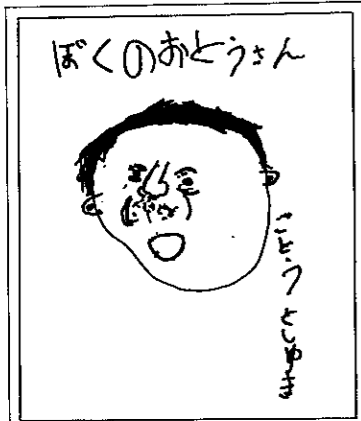 ぼくのおとうさん
さとうとしゆき